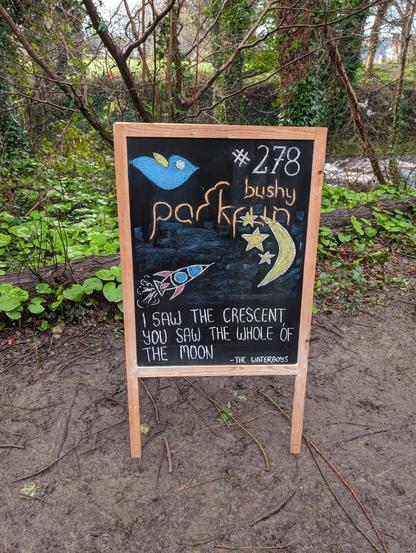 #278
bushy
parkrun
I SAW THE CRESCENT,
YOU SAW THE WHOLE OF
THE MOON
-THE WATERBOYS